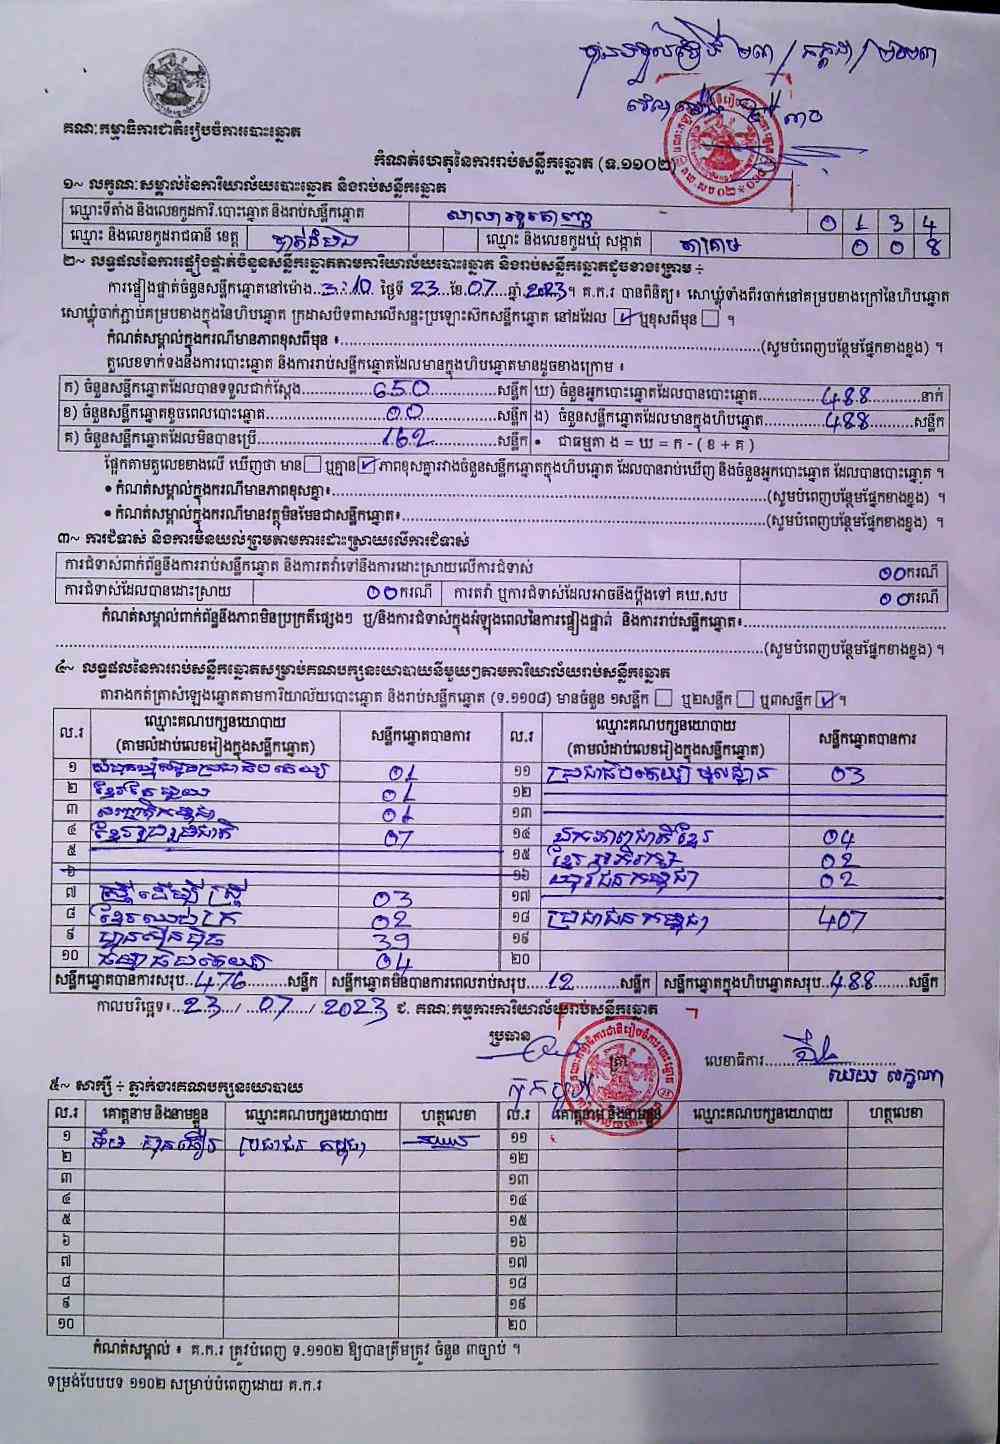 បានទទួលថ្ងៃទី ២៣ / កក្កដា / ២០២៣
គណៈកម្មាធិការជាតិរៀបចំការបោះឆ្នោត
កំណត់ហេតុនៃការរាប់សន្លឹកឆ្នោត (ទ.១១០២)
១~ លក្ខណៈសម្គាល់នៃការិយាល័យបោះឆ្នោត និងរាប់សន្លឹកឆ្នោត
ឈ្មោះទីតាំង និងលេខកូដការិ.បោះឆ្នោត និងរាប់សន្លឹកឆ្នោត 0 1 3 4
ឈ្មោះ និងលេខកូដរាជធានី ខេត្ត បាត់ដំបង ឈ្មោះ និងលេខកូដឃុំ សង្កាត់ តាគ្រាម 0 0 8
២~ លទ្ធផលនៃការផ្ទៀងផ្ទាត់ចំនួនសន្លឹកឆ្នោតតាមការិយាល័យបោះឆ្នោត និងរាប់សន្លឹកឆ្នោតដូចខាងក្រោម ÷
ការផ្ទៀងផ្ទាត់ចំនួនសន្លឹកឆ្នោតនៅម៉ោង..3:10 ថ្ងៃទី 23 ខែ.07 ឆ្នាំ.2023។ គ.ក.រ បានពិនិត្យ៖ សោឃ្លុំទាំងពីរចាក់នៅគម្របខាងក្រៅនៃហិបឆ្នោត
សោឃ្លុំចាក់ភ្ជាប់គម្របខាងក្នុងនៃហិបឆ្នោត ក្រដាសបិទពាសលើសន្ទះប្រឡោះសឹកសន្លឹកឆ្នោត នៅដដែល ☑ ឬខុសពីមុន ☐ ។
កំណត់សម្គាល់ក្នុងករណីមានភាពខុសពីមុន ៖ (សូមបំពេញបន្ថែមផ្នែកខាងខ្នង) ។
តួលេខទាក់ទងនឹងការបោះឆ្នោត និងការរាប់សន្លឹកឆ្នោតដែលមានក្នុងហិបឆ្នោតមានដូចខាងក្រោម ៖
ក) ចំនួនសន្លឹកឆ្នោតដែលបានទទួលជាក់ស្តែង 650 សន្លឹក ឃ) ចំនួនអ្នកបោះឆ្នោតដែលបានបោះឆ្នោត 488 នាក់
ខ) ចំនួនសន្លឹកឆ្នោតខូចពេលបោះឆ្នោត 00 សន្លឹក ង) ចំនួនសន្លឹកឆ្នោតដែលមានក្នុងហិបឆ្នោត 488 សន្លឹក
គ) ចំនួនសន្លឹកឆ្នោតដែលមិនបានប្រើ 162 សន្លឹក • ជាធម្មតា ង = ឃ = ក - ( ខ + គ )
ផ្អែកតាមតួលេខខាងលើ ឃើញថា មាន ☐ ឬគ្មាន ☑ ភាពខុសគ្នារវាងចំនួនសន្លឹកឆ្នោតក្នុងហិបឆ្នោត ដែលបានរាប់ឃើញ និងចំនួនអ្នកបោះឆ្នោត ដែលបានបោះឆ្នោត ។
• កំណត់សម្គាល់ក្នុងករណីមានភាពខុសគ្នា៖ (សូមបំពេញបន្ថែមផ្នែកខាងខ្នង) ។
• កំណត់សម្គាល់ក្នុងករណីមានវត្ថុមិនមែនជាសន្លឹកឆ្នោត៖ (សូមបំពេញបន្ថែមផ្នែកខាងខ្នង) ។
៣~ ការជំទាស់ និងការមិនយល់ព្រមតាមការដោះស្រាយលើការជំទាស់
ការជំទាស់ពាក់ព័ន្ធនឹងការរាប់សន្លឹកឆ្នោត និងការតវ៉ាទៅនឹងការដោះស្រាយលើការជំទាស់ 00 ករណី
ការជំទាស់ដែលបានដោះស្រាយ 00 ករណី ការតវ៉ា ឬការជំទាស់ដែលអាចនឹងប្តឹងទៅ គឃ.សប 00 ករណី
កំណត់សម្គាល់ពាក់ព័ន្ធនឹងភាពមិនប្រក្រតីផ្សេងៗ ឬ/និងការជំទាស់ក្នុងអំឡុងពេលនៃការផ្ទៀងផ្ទាត់ និងការរាប់សន្លឹកឆ្នោត៖
(សូមបំពេញបន្ថែមផ្នែកខាងខ្នង) ។
៤~ លទ្ធផលនៃការរាប់សន្លឹកឆ្នោតសម្រាប់គណបក្សនយោបាយនីមួយៗតាមការិយាល័យរាប់សន្លឹកឆ្នោត
តារាងកត់ត្រាសំឡេងឆ្នោតតាមការិយាល័យបោះឆ្នោត និងរាប់សន្លឹកឆ្នោត (ទ.១១០៨) មានចំនួន ១សន្លឹក ☐ ឬ២សន្លឹក ☐ ឬ៣សន្លឹក ☑ ។
ល.រ ឈ្មោះគណបក្សនយោបាយ (តាមលំដាប់លេខរៀងក្នុងសន្លឹកឆ្នោត) សន្លឹកឆ្នោតបានការ ល.រ ឈ្មោះគណបក្សនយោបាយ (តាមលំដាប់លេខរៀងក្នុងសន្លឹកឆ្នោត) សន្លឹកឆ្នោតបានការ
១ សំបុកឃ្មុំសង្គមប្រជាធិបតេយ្យ 01 ១១ ប្រជាធិបតេយ្យ មូលដ្ឋាន 03
២ ខ្មែរតែមួយ 01 ១២
៣ សញ្ជាតិកម្ពុជា 01 ១៣
៤ ខ្មែររួបរួមជាតិ 07 ១៤ ឯកភាពជាតិខ្មែរ 04
៥ ១៥ ខ្មែរ អភិរក្ស 02
៦ ១៦ យុវជនកម្ពុជា 02
៧ ស្ត្រី ដើម្បី ស្ត្រី 03 ១៧
៨ ខ្មែរឈប់ក្រ 02 ១៨ ប្រជាជនកម្ពុជា 407
៩ ហ៊្វុនស៊ិនប៉ិច 39 ១៩
១០ ធម្មាធិបតេយ្យ 04 ២០
សន្លឹកឆ្នោតបានការសរុប 476 សន្លឹក សន្លឹកឆ្នោតមិនបានការពេលរាប់សរុប 12 សន្លឹក សន្លឹកឆ្នោតក្នុងហិបឆ្នោតសរុប 488 សន្លឹក
កាលបរិច្ឆេទ៖ 23 / 07 / 2023 ជ. គណៈកម្មការការិយាល័យរាប់សន្លឹកឆ្នោត
ប្រធាន លេខាធិការ
៥~ សាក្សី ÷ ភ្នាក់ងារគណបក្សនយោបាយ
ល.រ គោត្តនាម និងនាមខ្លួន ឈ្មោះគណបក្សនយោបាយ ហត្ថលេខា ល.រ គោត្តនាម និងនាមខ្លួន ឈ្មោះគណបក្សនយោបាយ ហត្ថលេខា
១ ប្រជាជន កម្ពុជា ១១
២ ១២
៣ ១៣
៤ ១៤
៥ ១៥
៦ ១៦
៧ ១៧
៨ ១៨
៩ ១៩
១០ ២០
កំណត់សម្គាល់ ៖ គ.ក.រ ត្រូវបំពេញ ទ.១១០២ ឱ្យបានត្រឹមត្រូវ ចំនួន ៣ច្បាប់ ។
ទម្រង់បែបបទ ១១០២ សម្រាប់បំពេញដោយ គ.ក.រ